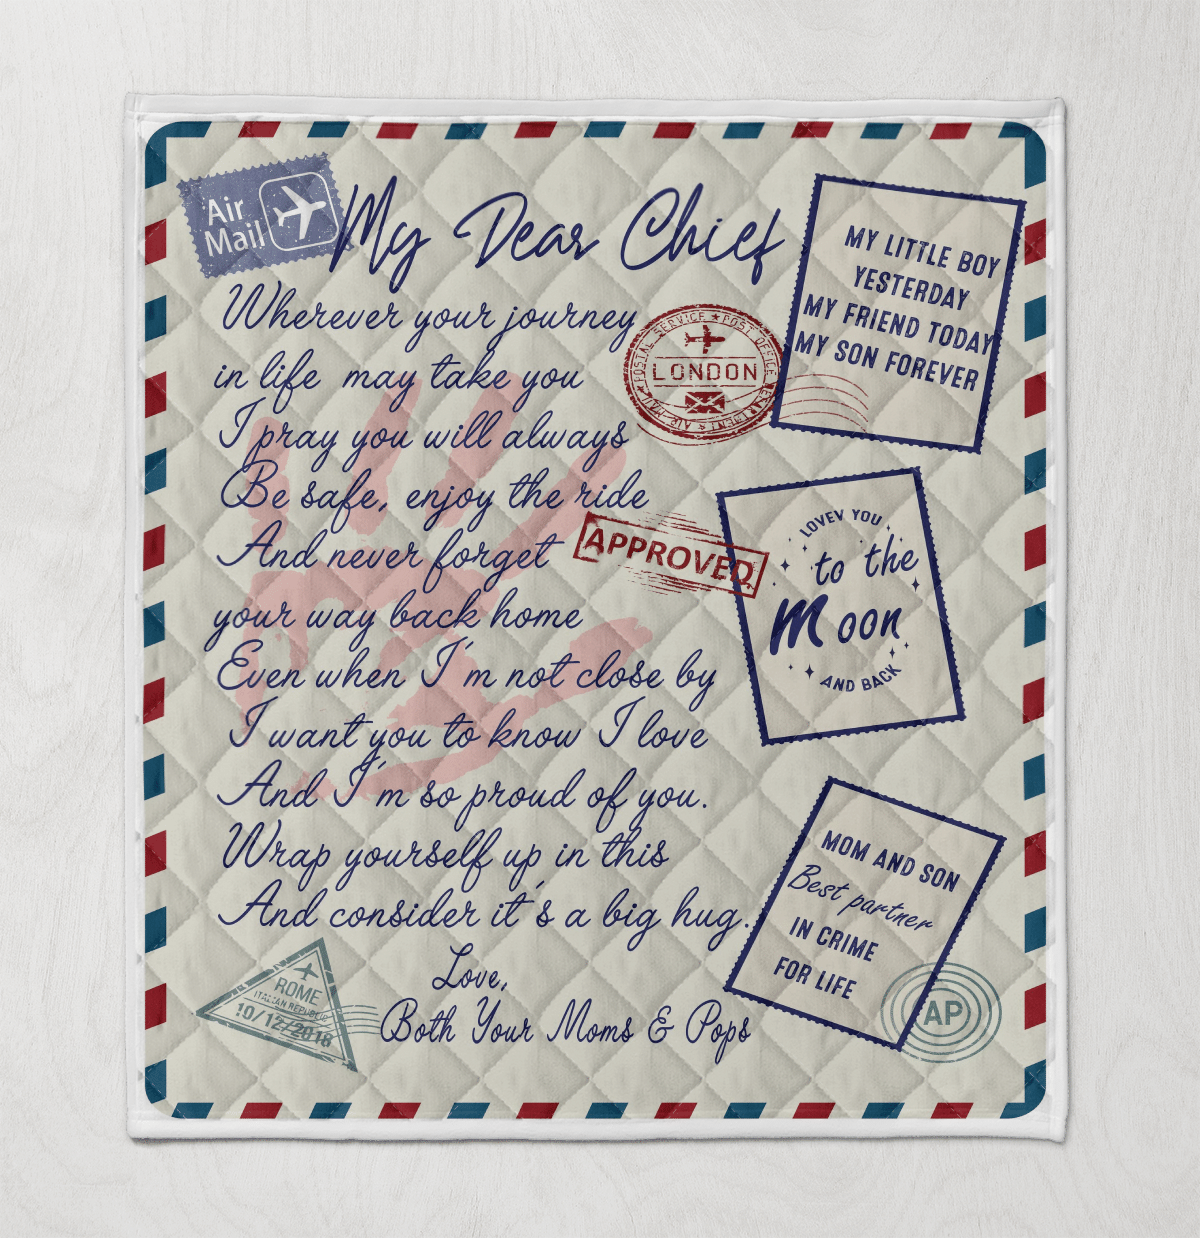 Air
Mail
My Dear Chief
Wherever your journey
in life may take you
I pray you will always
Be safe, enjoy the ride
And never forget
your way back home
Even when I'm not close by
I want you to know I love
And I'm so proud of you.
Wrap yourself up in this
And consider it's a big hug.
Love,
Both Your Moms & Pops
MY LITTLE BOY
YESTERDAY
MY FRIEND TODAY
MY SON FOREVER
POSTAL SERVICE ★ POST OFFICE
LONDON
AIR MAIL
APPROVED
LOVEV YOU
to the
Moon
AND BACK
MOM AND SON
Best partner
IN CRIME
FOR LIFE
ROME
ITALIAN REPUBLIC
10/12/2018
AP